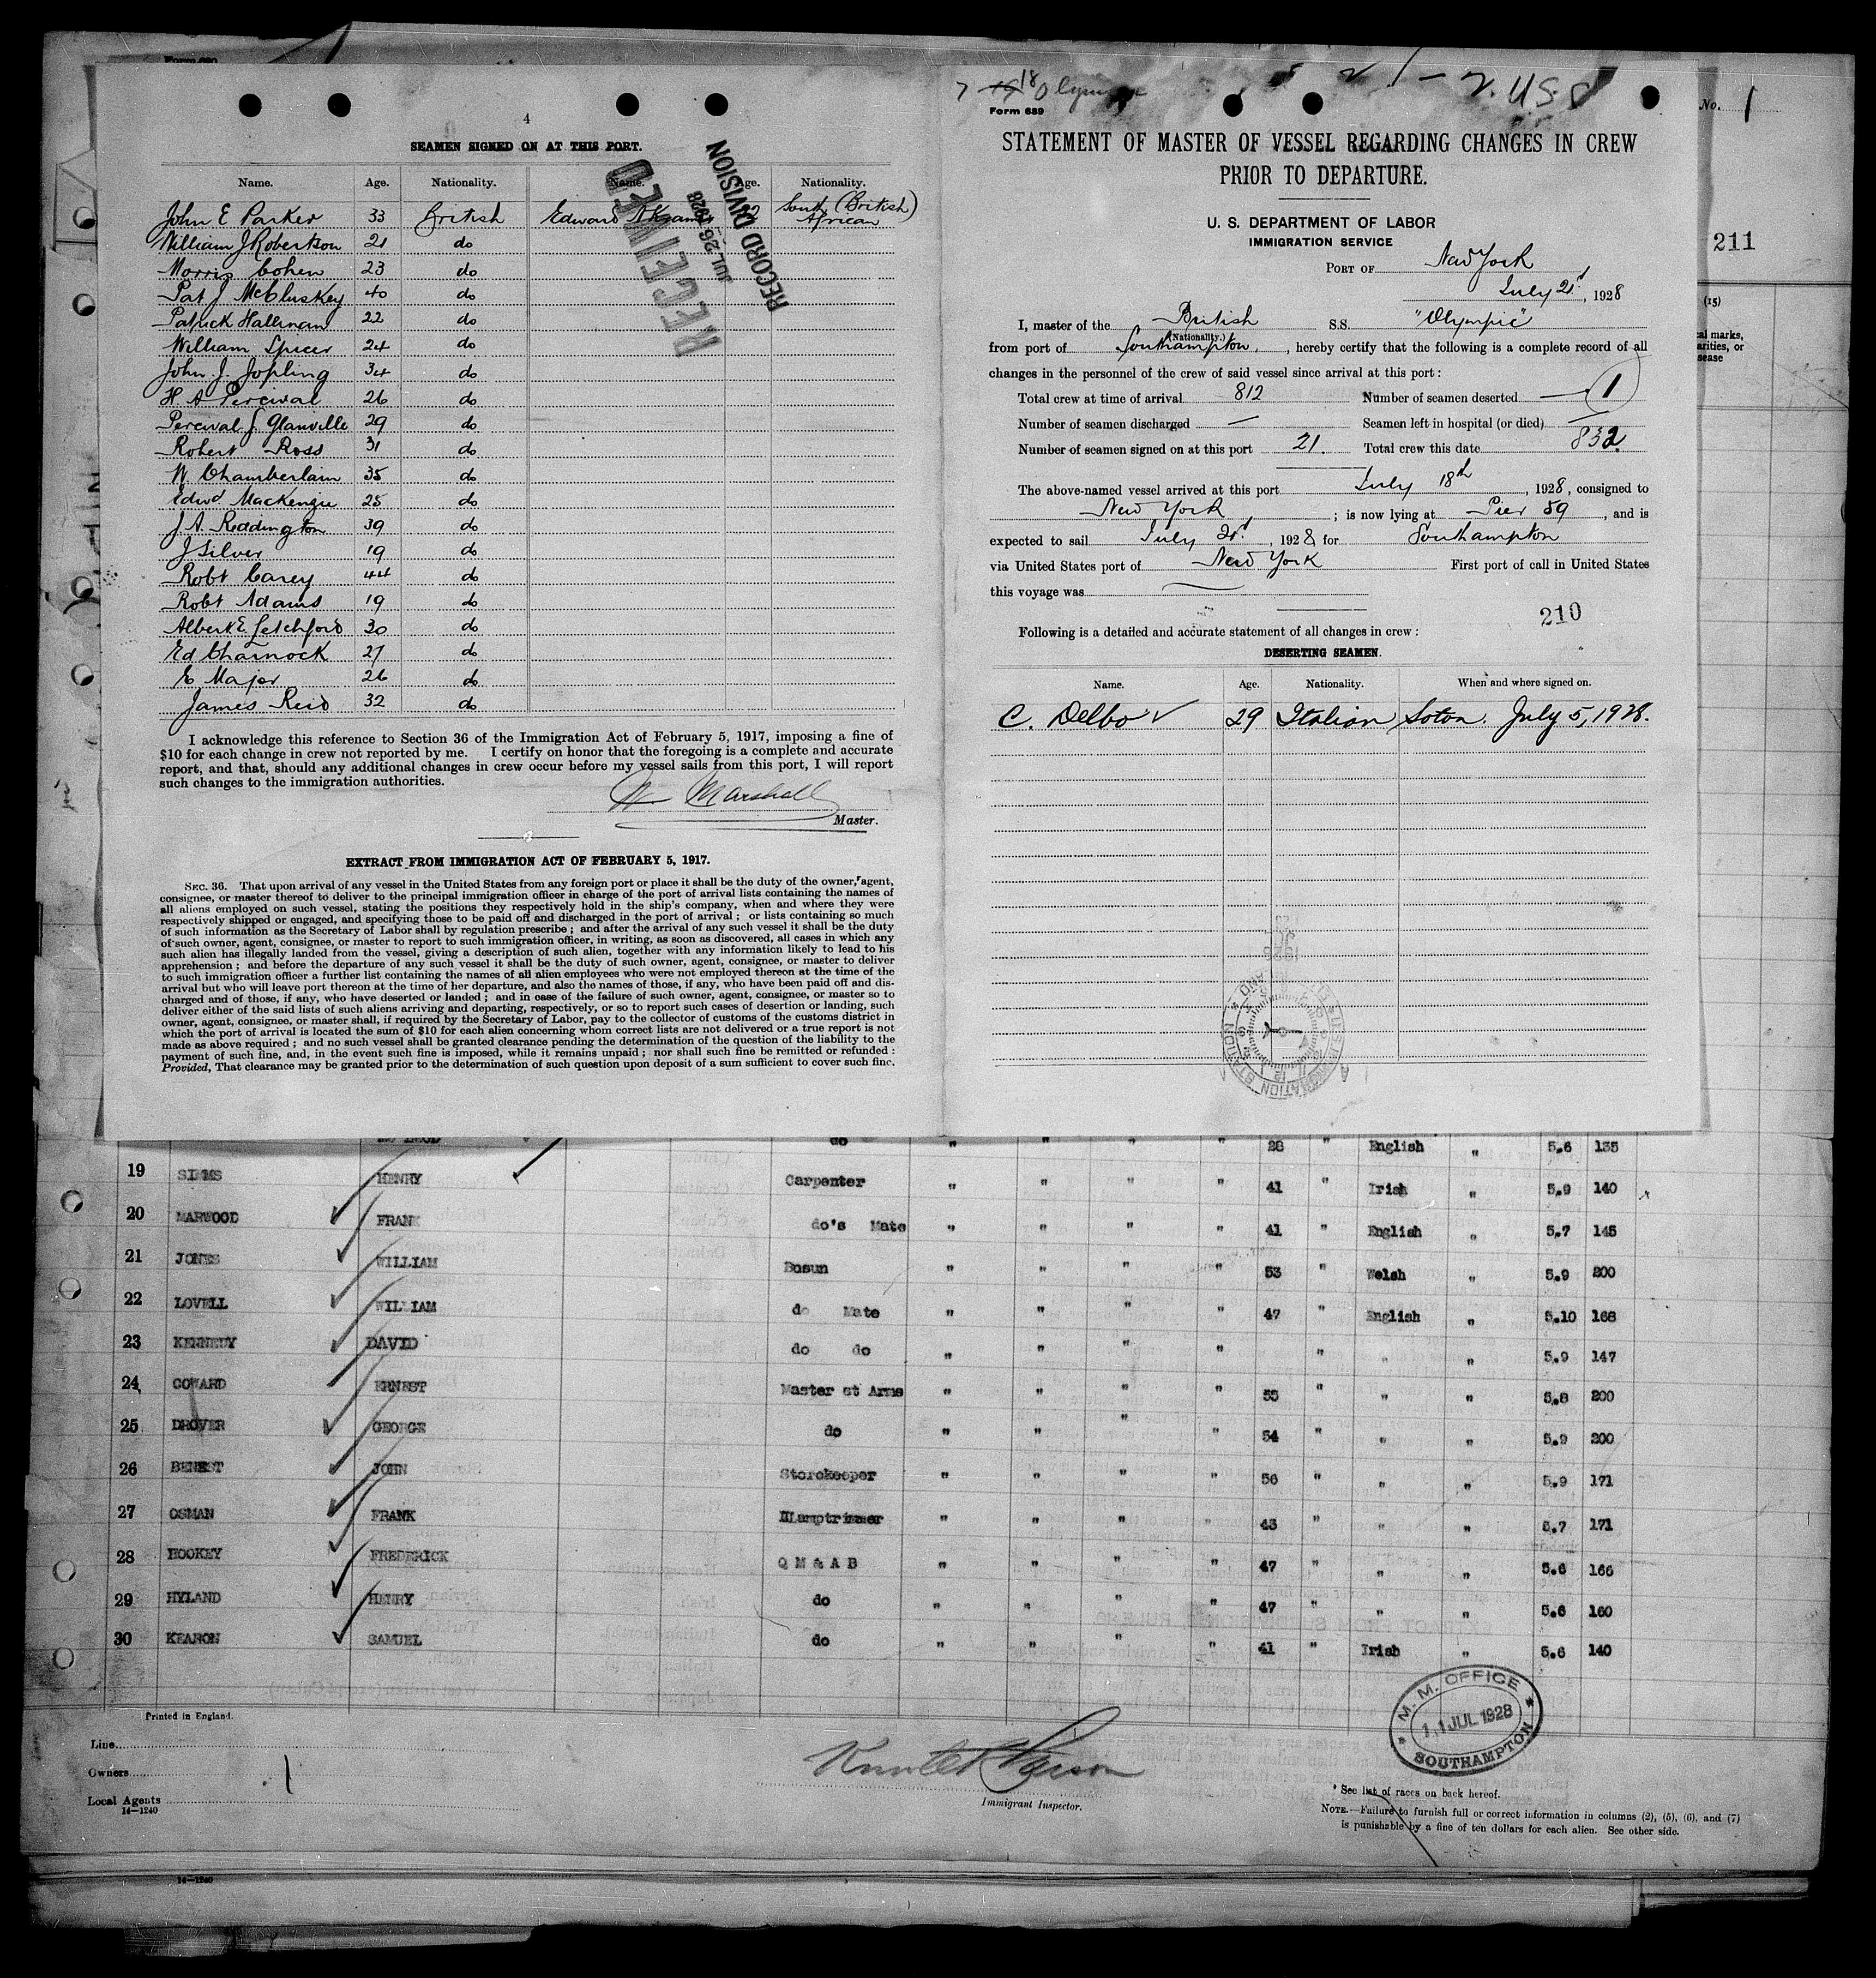 4
SEAMEN SIGNED ON AT THIS PORT.
Name. Age. Nationality. Name. Age. Nationality.
John E Parker 33 British Edward South (British) African
William J Robertson 21 do
Morris Cohen 23 do
Pat J McCluskey 40 do
Patrick Hallinan 22 do
William Spicer 24 do
John. J. Jopling 34 do
H. A Percival 26 do
Percival J. Glanville 29 do
Robert Ross 31 do
W Chamberlain 35 do
Edwd MacKenzie 25 do
J. A. Reddington 39 do
J Silver 19 do
Robt Carey 44 do
Robt Adams 19 do
Albert E. Letchford 30 do
Ed Charnock 27 do
E Major 26 do
James Reid 32 do
RECEIVED
JUL 26 1928
RECORD DIVISION
I acknowledge this reference to Section 36 of the Immigration Act of February 5, 1917, imposing a fine of
$10 for each change in crew not reported by me. I certify on honor that the foregoing is a complete and accurate
report, and that, should any additional changes in crew occur before my vessel sails from this port, I will report
such changes to the immigration authorities.
W Marshall
Master.
EXTRACT FROM IMMIGRATION ACT OF FEBRUARY 5, 1917.
SEC. 36. That upon arrival of any vessel in the United States from any foreign port or place it shall be the duty of the owner, agent,
consignee, or master thereof to deliver to the principal immigration officer in charge of the port of arrival lists containing the names of
all aliens employed on such vessel, stating the positions they respectively hold in the ship's company, when and where they were
respectively shipped or engaged, and specifying those to be paid off and discharged in the port of arrival; or lists containing so much
of such information as the Secretary of Labor shall by regulation prescribe; and after the arrival of any such vessel it shall be the duty
of such owner, agent, consignee, or master to report to such immigration officer, in writing, as soon as discovered, all cases in which any
such alien has illegally landed from the vessel, giving a description of such alien, together with any information likely to lead to his
apprehension; and before the departure of any such vessel it shall be the duty of such owner, agent, consignee, or master to deliver
to such immigration officer a further list containing the names of all alien employees who were not employed thereon at the time of the
arrival but who will leave port thereon at the time of her departure, and also the names of those, if any, who have been paid off and dis-
charged and of those, if any, who have deserted or landed; and in case of the failure of such owner, agent, consignee, or master so to
deliver either of the said lists of such aliens arriving and departing, respectively, or so to report such cases of desertion or landing, such
owner, agent, consignee, or master shall, if required by the Secretary of Labor, pay to the collector of customs of the customs district in
which the port of arrival is located the sum of $10 for each alien concerning whom correct lists are not delivered or a true report is not
made as above required; and no such vessel shall be granted clearance pending the determination of the question of the liability to the
payment of such fine, and, in the event such fine is imposed, while it remains unpaid; nor shall such fine be remitted or refunded:
Provided, That clearance may be granted prior to the determination of such question upon deposit of a sum sufficient to cover such fine.
Form 689
STATEMENT OF MASTER OF VESSEL REGARDING CHANGES IN CREW
PRIOR TO DEPARTURE.
U. S. DEPARTMENT OF LABOR
IMMIGRATION SERVICE
PORT OF New York
July 21st, 1928
I, master of the British S.S. "Olympic"
(Nationality.)
from port of Southampton, hereby certify that the following is a complete record of all
changes in the personnel of the crew of said vessel since arrival at this port:
Total crew at time of arrival 812 Number of seamen deserted 1
Number of seamen discharged — Seamen left in hospital (or died) —
Number of seamen signed on at this port 21. Total crew this date 832.
The above-named vessel arrived at this port July 18th, 1928, consigned to
New York; is now lying at Pier 59, and is
expected to sail July 21st, 1928 for Southampton
via United States port of New York First port of call in United States
this voyage was
210
Following is a detailed and accurate statement of all changes in crew:
DESERTING SEAMEN.
Name. Age. Nationality. When and where signed on.
C. Delbo 29 Italian Soton. July 5, 1928.
No. 1
211
(15)
do " " " " 28 " English " 5.6 135
19 SIMMS HENRY Carpenter " " " " 41 " Irish " 5.9 140
20 MARWOOD FRANK do's Mate " " " " 41 " English " 5.7 145
21 JONES WILLIAM Bosun " " " " 53 " Welsh " 5.9 200
22 LOVELL WILLIAM do Mate " " " " 47 " English " 5.10 168
23 KENNEDY DAVID do do " " " " " " " 5.9 147
24 COWARD ERNEST Master at Arms " " " " 55 " " " 5.8 200
25 DROVER GEORGE do " " " " 54 " " " 5.9 200
26 BENEST JOHN Storekeeper " " " " 56 " " " 5.9 171
27 OSMAN FRANK Lamptrimmer " " " " 43 " " " 5.7 171
28 HOOKEY FREDERICK Q M & A B " " " " 47 " " " 5.6 166
29 HYLAND HENRY do " " " " 47 " " " 5.6 160
30 KEARON SAMUEL do " " " " 41 " Irish " 5.6 140
Printed in England.
Line
Owners
Local Agents
14—1240
Immigrant Inspector.
M. M. OFFICE
11 JUL 1928
SOUTHAMPTON
* See list of races on back hereof.
NOTE.—Failure to furnish full or correct information in columns (2), (5), (6), and (7)
is punishable by a fine of ten dollars for each alien. See other side.
14—1240